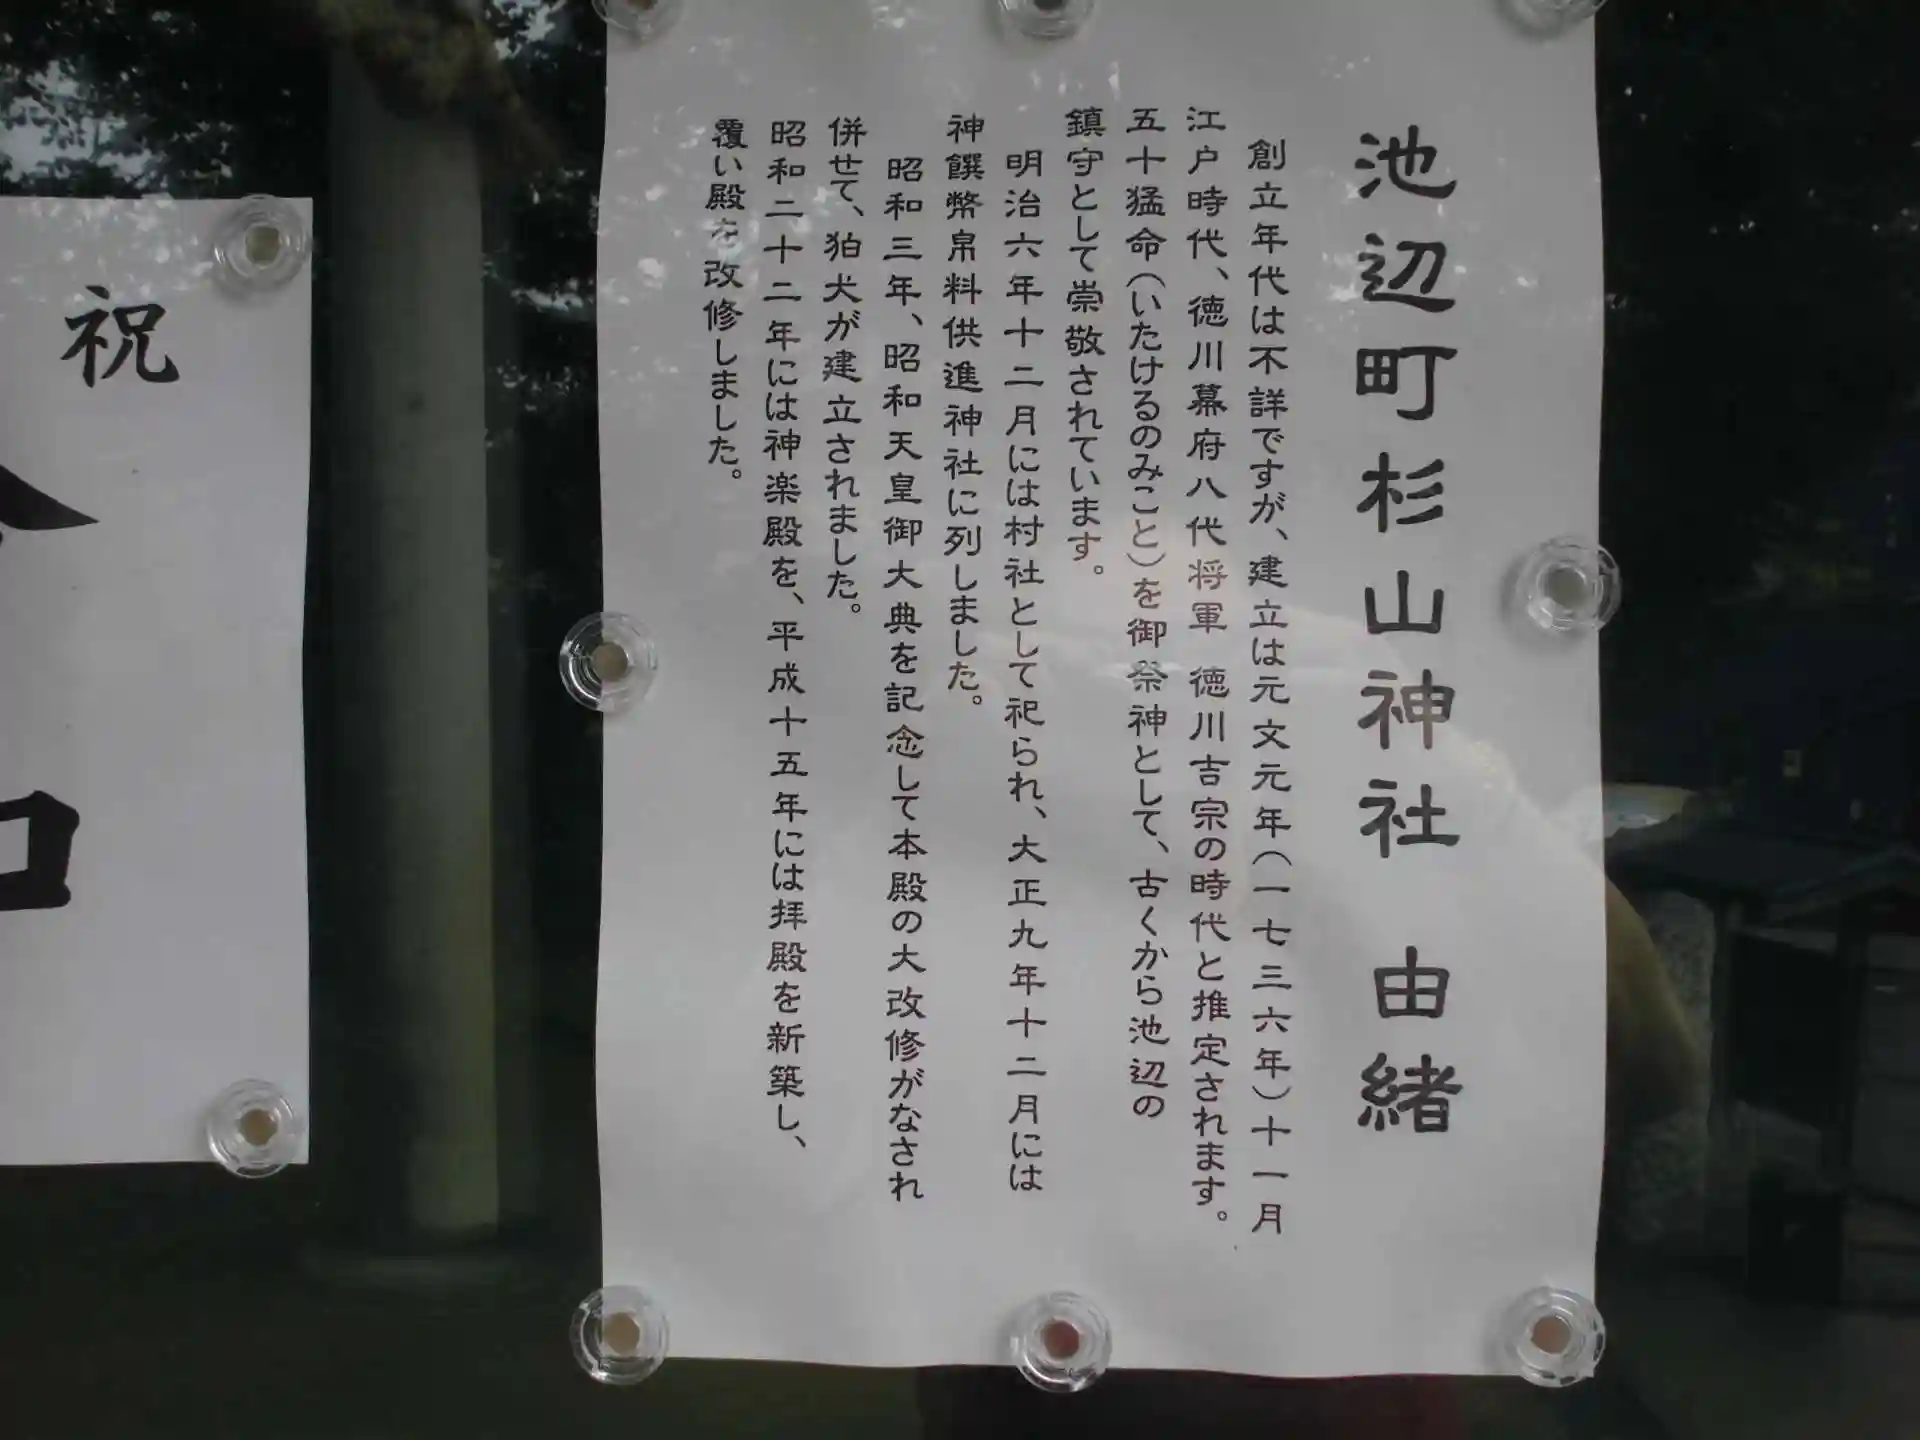 池辺町杉山神社 由緒
創立年代は不詳ですが、建立は元文元年(一七三六年)十一月
江戸時代、徳川幕府八代将軍 徳川吉宗の時代と推定されます。
五十猛命(いたけるのみこと)を御祭神として、古くから池辺の
鎮守として崇敬されています。
明治六年十二月には村社として祀られ、大正九年十二月には
神饌幣帛料供進神社に列しました。
昭和三年、昭和天皇御大典を記念して本殿の大改修がなされ
併せて、狛犬が建立されました。
昭和二十二年には神楽殿を、平成十五年には拝殿を新築し、
覆い殿を改修しました。
祝